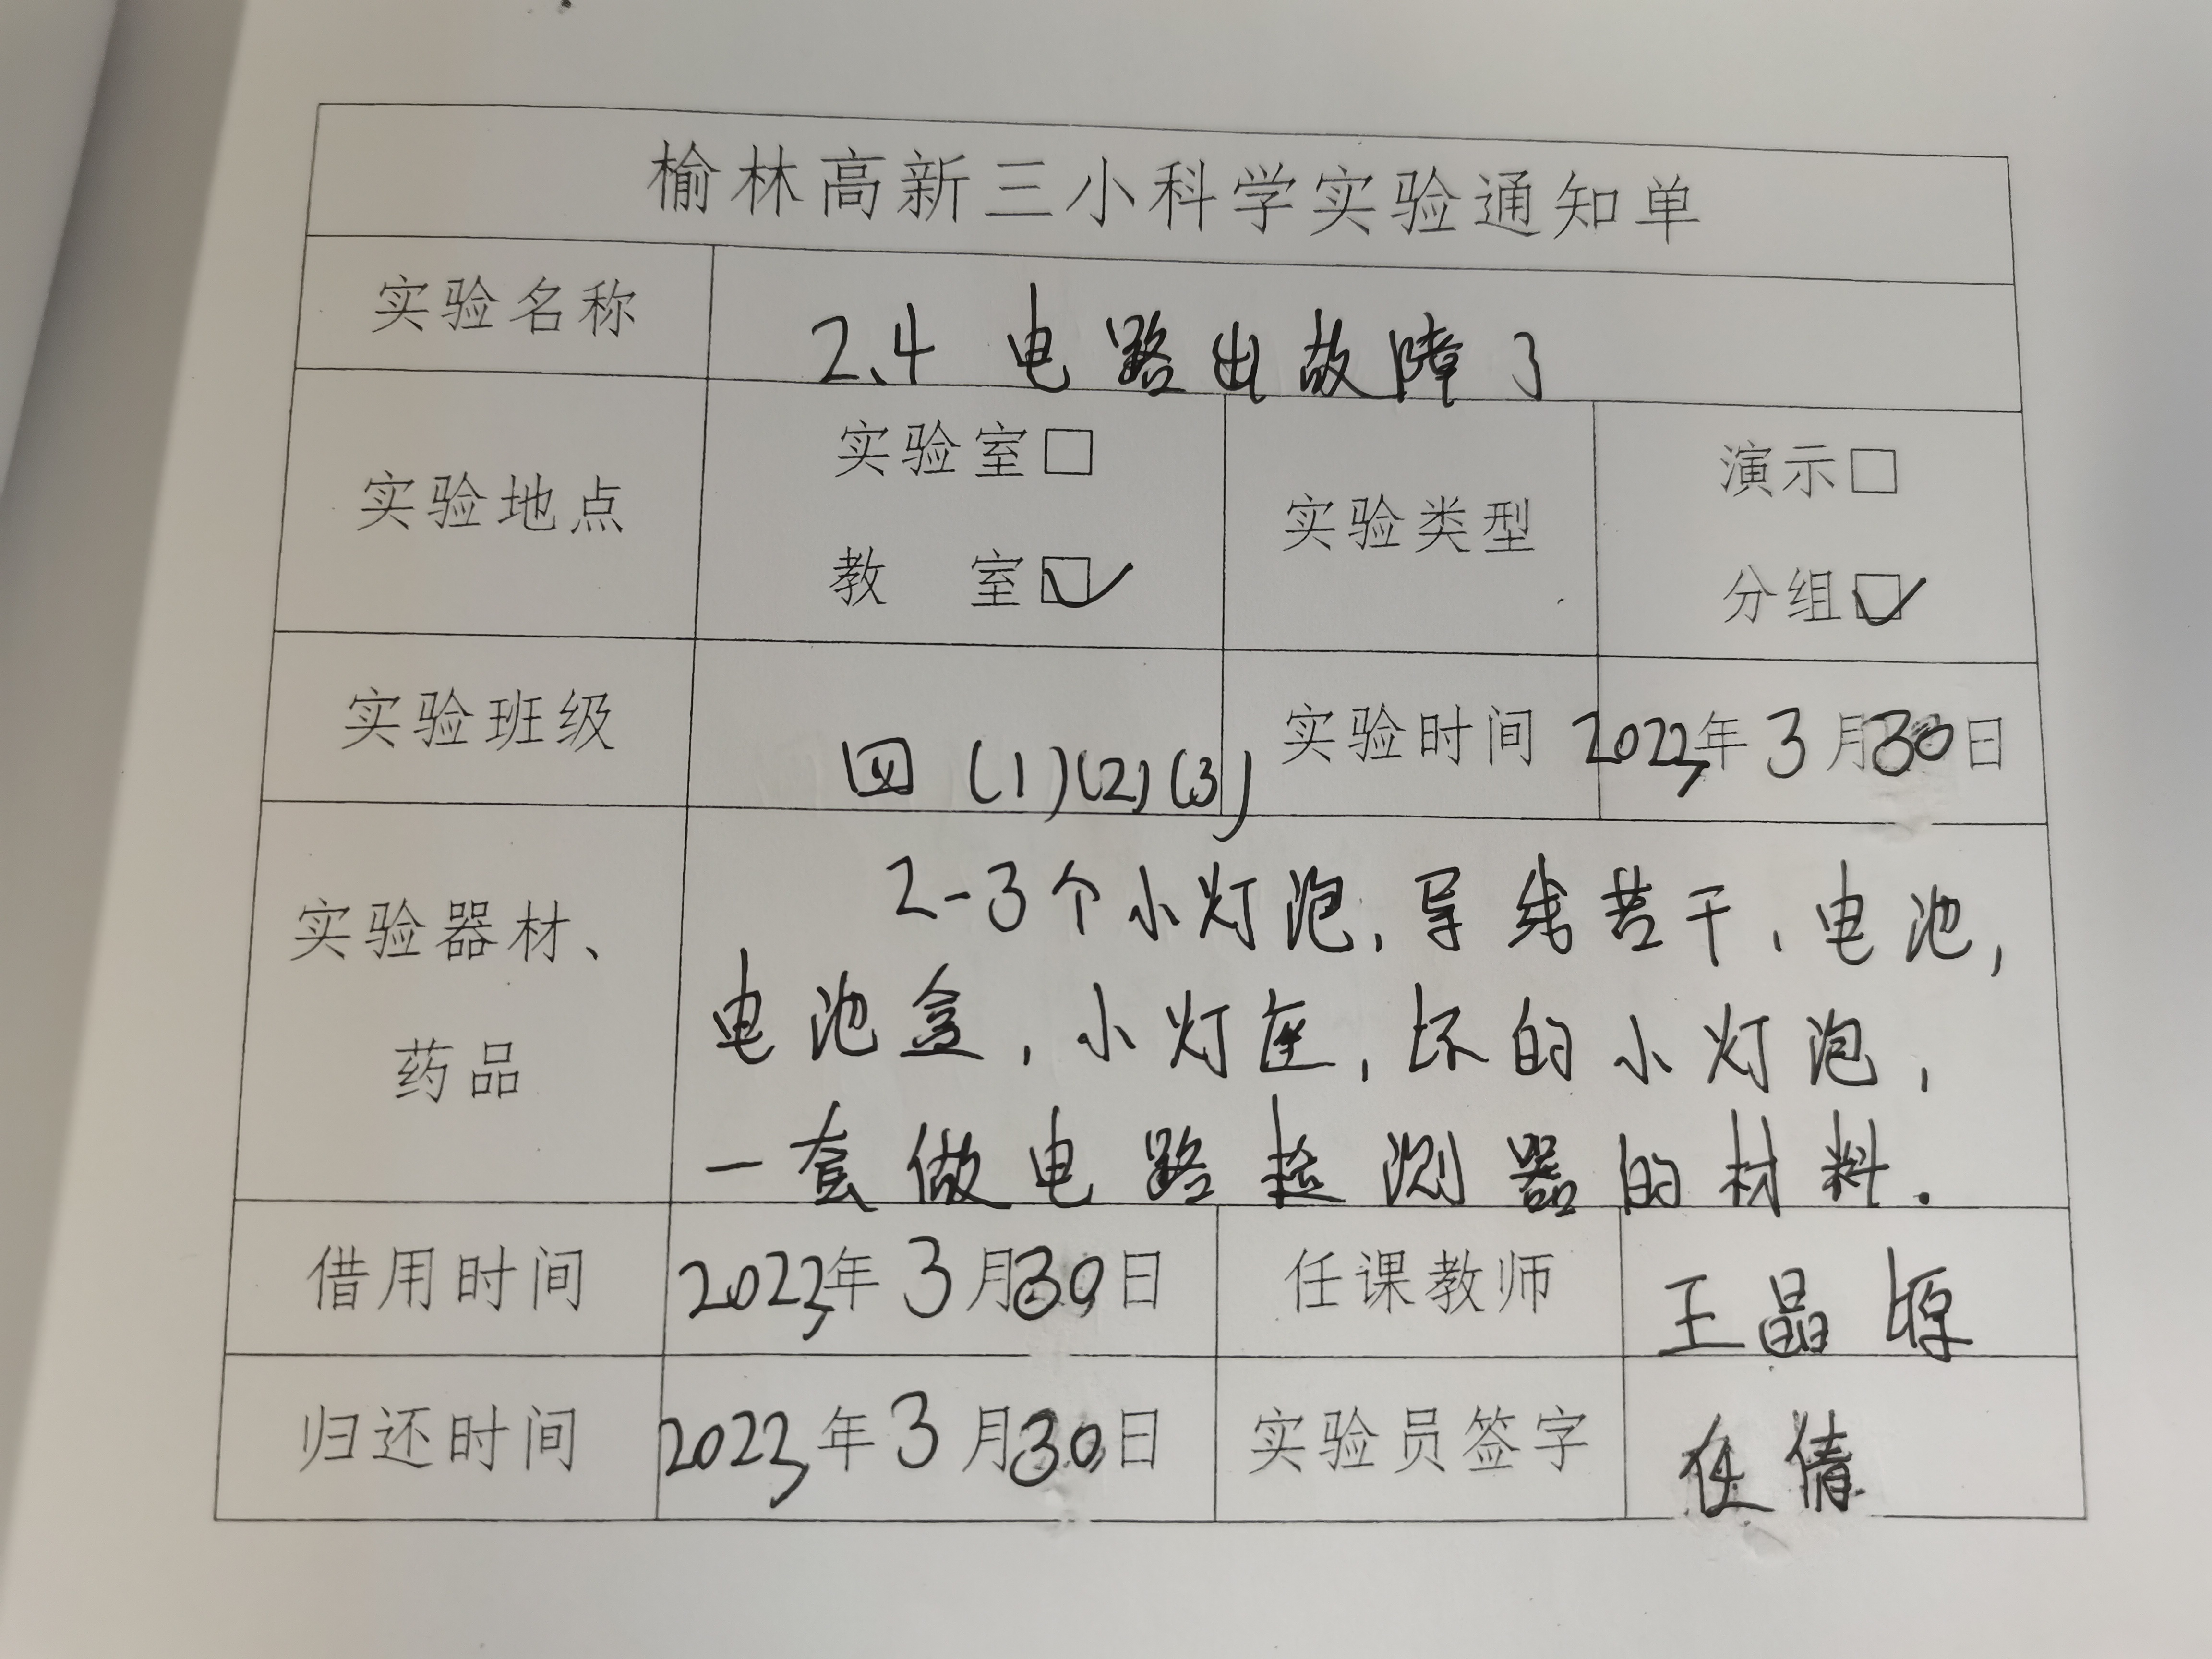 榆林高新三小科学实验通知单
实验名称 2.4 电路出故障了
实验地点 实验室□ 实验类型 演示□
教 室☑ 分组☑
实验班级 四(1)(2)(3) 实验时间 2023年3月30日
实验器材、药品 2-3个小灯泡,导线若干,电池,
电池盒,小灯座,坏的小灯泡,
一套做电路检测器的材料.
借用时间 2023年3月30日 任课教师 王晶
归还时间 2023年3月30日 实验员签字 任倩